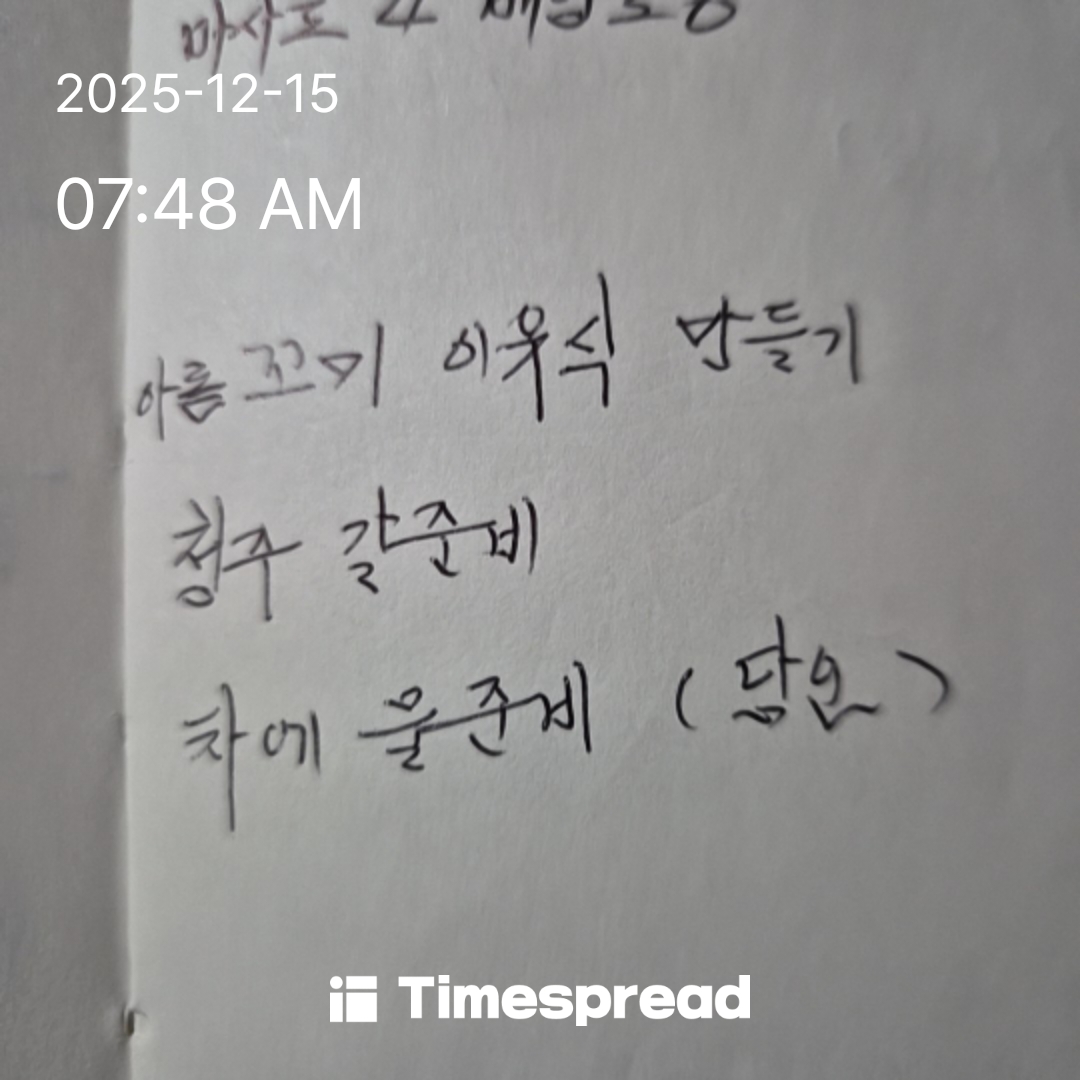 마사토
2025-12-15
07:48 AM
아름 꼬미 이유식 만들기
청주 갈준비
차에 물준비 (담요)
Timespread